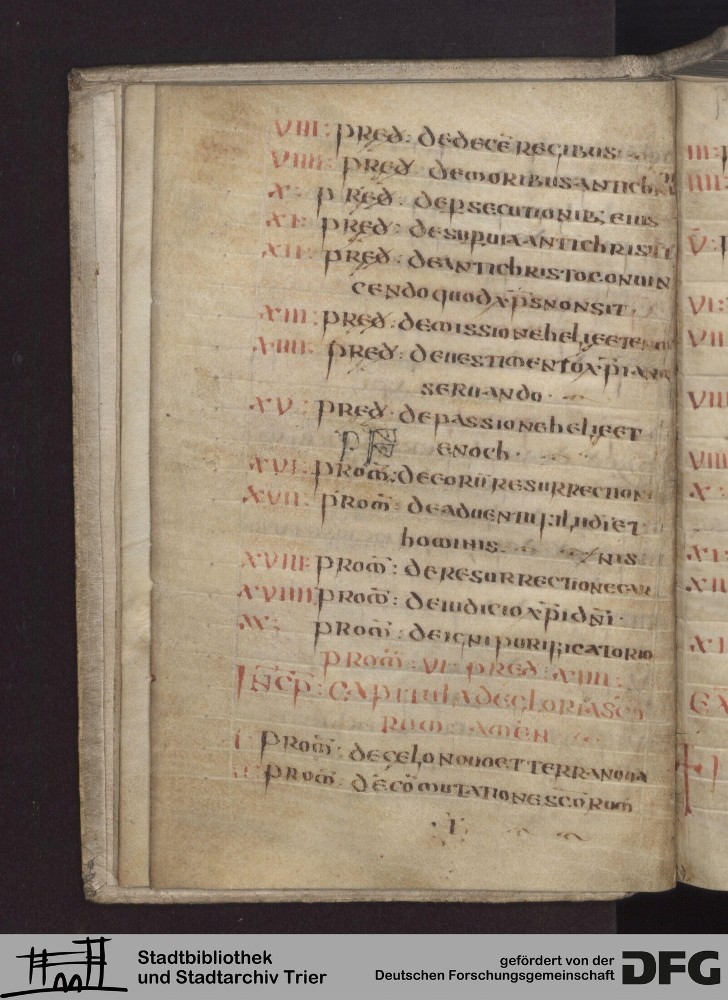 VIII: pred: de decē regibus
VIIII: pred de moribus antichri
X: pred: de psecutionib; eius
XI: pred: de supuia antichristi
XII: pred: de antichristo conuin
cendo quod xp̄s non sit.
XIII: pred: de missione helię et eno
XIIII: pred: de uestimento xp̄iani
seruando.
XV: pred: de passione helię et
enoch.
XVI: prom̄: de corū resurrection
XVII: prom̄ de aduentu filii di et
hominis. nis
XVIII: prom̄: de resurrectione
XVIIII: prom̄: de iudicio xp̄i dn̄i.
XX: prom̄: de igni purificatorio
prom̄: VI: pred: XIIII:
Incp̄: capitula de gloria sc̄o
rum amen
I: prom̄: de cęlo nouo et terra noua
II: prom̄: de cōmutatione sc̄orum
I
III:
IIII:
V:
VI:
VII
VIII
VIIII
X
XI
XII
Stadtbibliothek
und Stadtarchiv Trier
gefördert von der
Deutschen Forschungsgemeinschaft
DFG